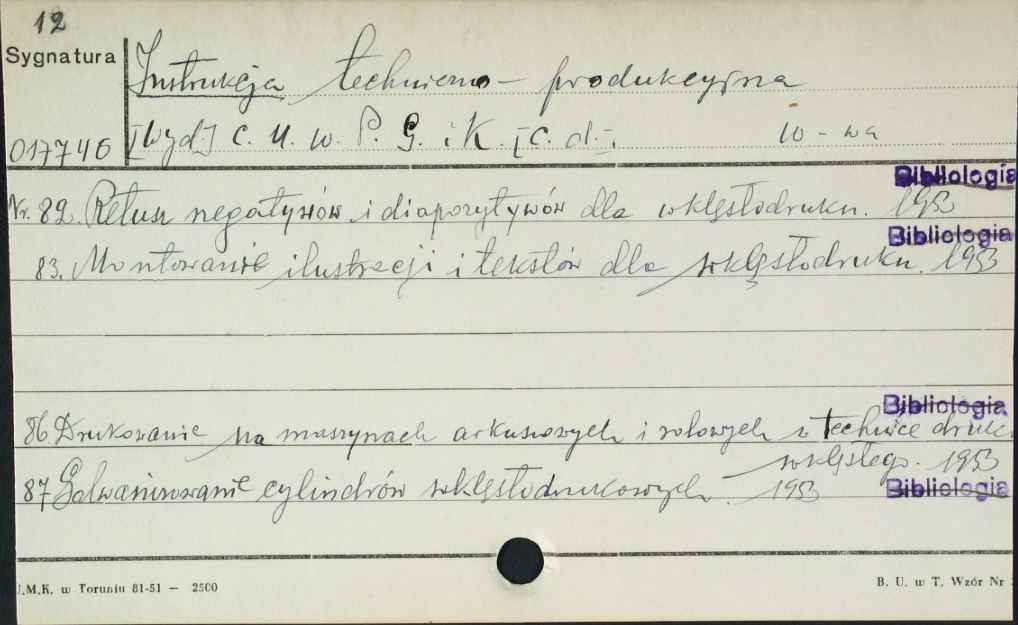 12
Sygnatura
Instrukcja techniczno - produkcyjna
017746 [Wyd.] C. U. w. P. G. i K. [C. d.]. W - wa
Bibliologia
Nr. 82. Retusz negatywów i diapozytywów dla wklęsłodruku. 1953
Bibliologia
83. Montowanie ilustracji i tekstów dla wklęsłodruku. 1953
Bibliologia
86. Drukowanie na maszynach arkuszowych i rolowych w technice druku
wklęsłego. 1953
87 Galwanizowanie cylindrów wklęsłodrukowych. 1953 Bibliologia
U.M.K. w Toruniu 81-51 — 2500
B. U. w T. Wzór Nr